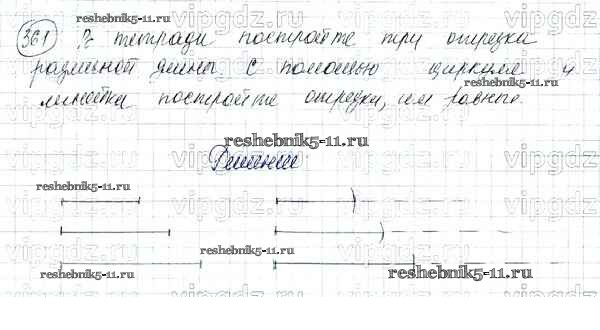 361 В тетради постройте три отрезка
различной длины. С помощью циркуля и
линейки постройте отрезки, им равные.
Решение
reshebnik5-11.ru
reshebnik5-11.ru
reshebnik5-11.ru
reshebnik5-11.ru
reshebnik5-11.ru
reshebnik5-11.ru
reshebnik5-11.ru
vipgdz